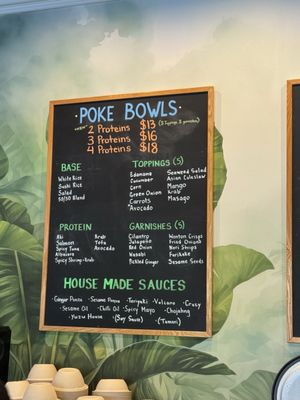 · POKE BOWLS ·
2 Proteins $13 (3 Toppings, 2 garnishes)
3 Proteins $16
4 Proteins $18
BASE
White Rice
Sushi Rice
Salad
50/50 Blend
TOPPINGS (5)
Edamame
Cucumber
Corn
Green Onion
Carrots
Avocado
Seaweed Salad
Asian Coleslaw
Mango
Krab
Masago
PROTEIN
Ahi
Salmon
Spicy Tuna
Albacore
Spicy Shrimp + Krab
Krab
Tofu
Avocado
GARNISHES (5)
Cilantro
Jalapeño
Red Onion
Wasabi
Pickled Ginger
Wonton Crisps
Fried Onion
Nori Strips
Furikake
Sesame Seeds
HOUSE MADE SAUCES
· Ginger Ponzu · Sesame Ponzu · Teriyaki · Volcano · Crazy
· Sesame Oil · Chili Oil · Spicy Mayo · Chojahng
· Yuzu House · (Soy Sauce) · (Tamari)